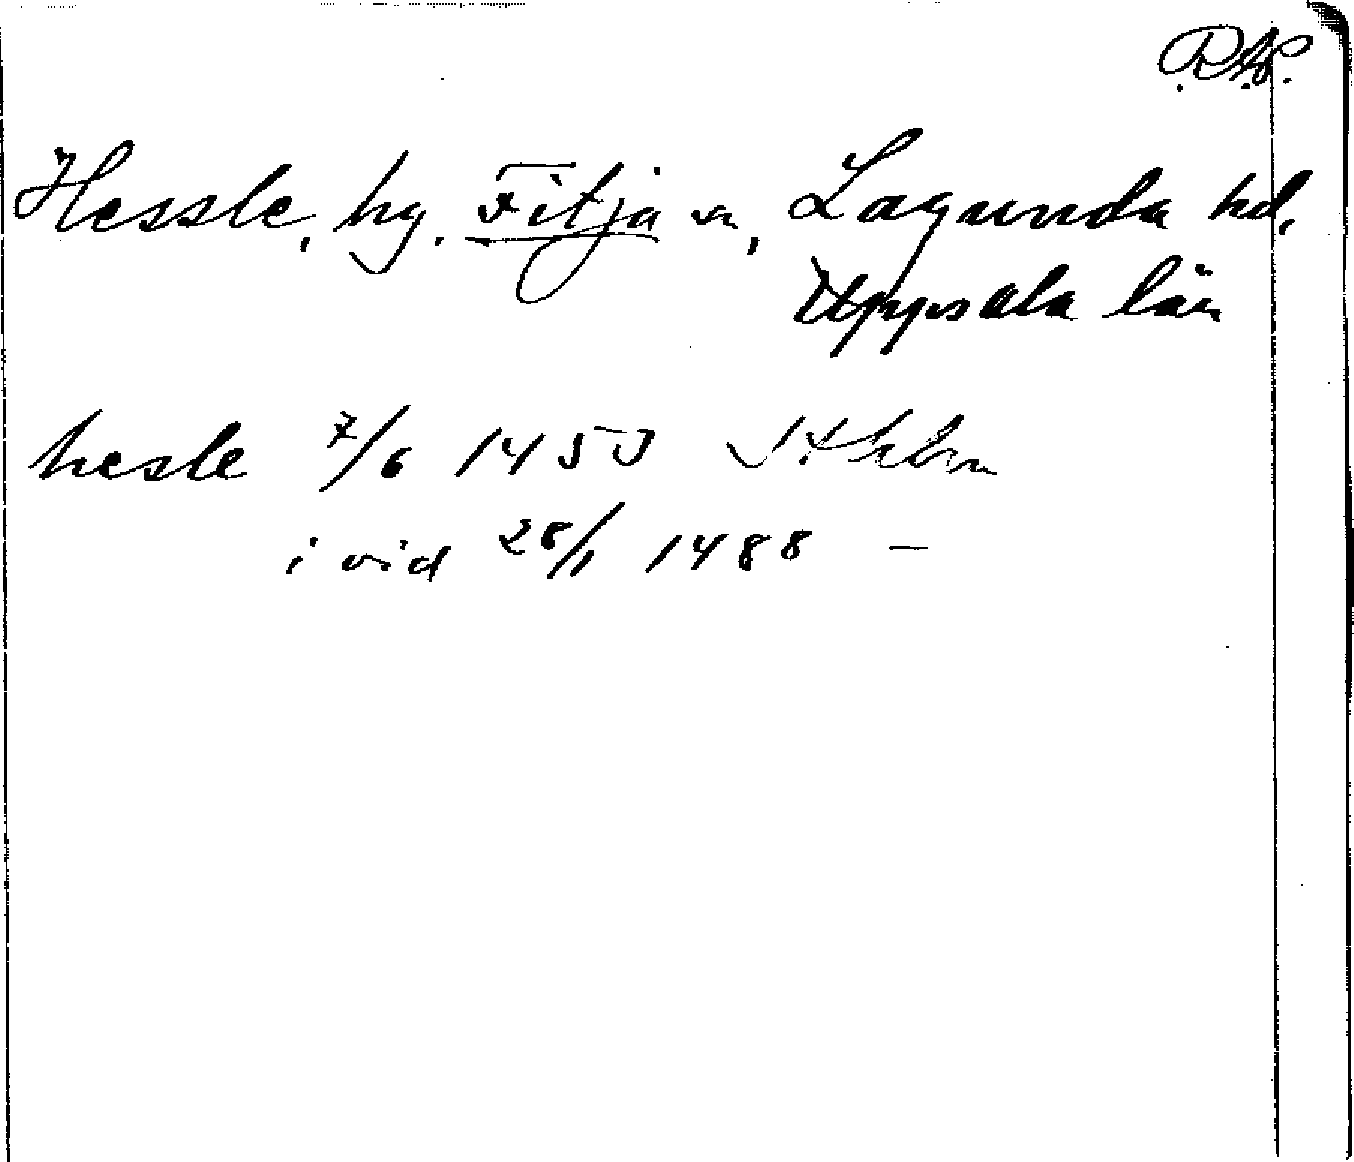 R.A.P.
Hessle, by, Fitja sn, Lagunda hd,
Uppsala län
hesle 7/6 1453 Sthlm
i vid 28/1 1488 —